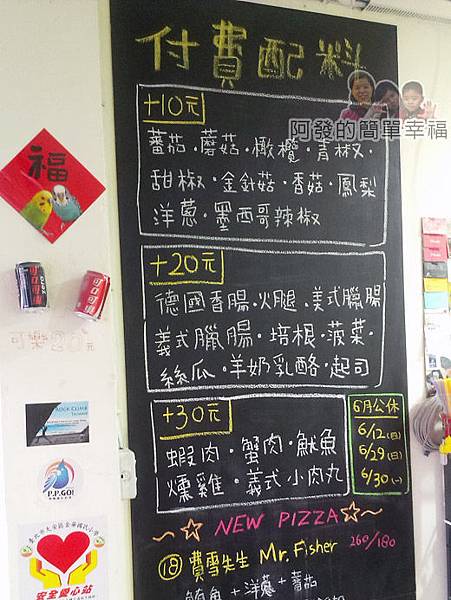 付費配料
阿發的簡單幸福
+10元
蕃茄·蘑菇·橄欖·青椒·
甜椒·金針菇·香菇·鳳梨
洋蔥·墨西哥辣椒
+20元
德國香腸·火腿·美式臘腸
義式臘腸·培根·菠菜·
絲瓜·羊奶乳酪·起司
+30元
蝦肉·蟹肉·魷魚
燻雞·義式小肉丸
6月公休
6/12(日)
6/29(日)
6/30(一)
NEW PIZZA
⑱費雪先生 Mr. Fisher 260/180
鮪魚+洋蔥+蕃茄
福
可口可樂
可口可樂
可樂20元
ROCK CLIMB
P.P.GO!
安全愛心站